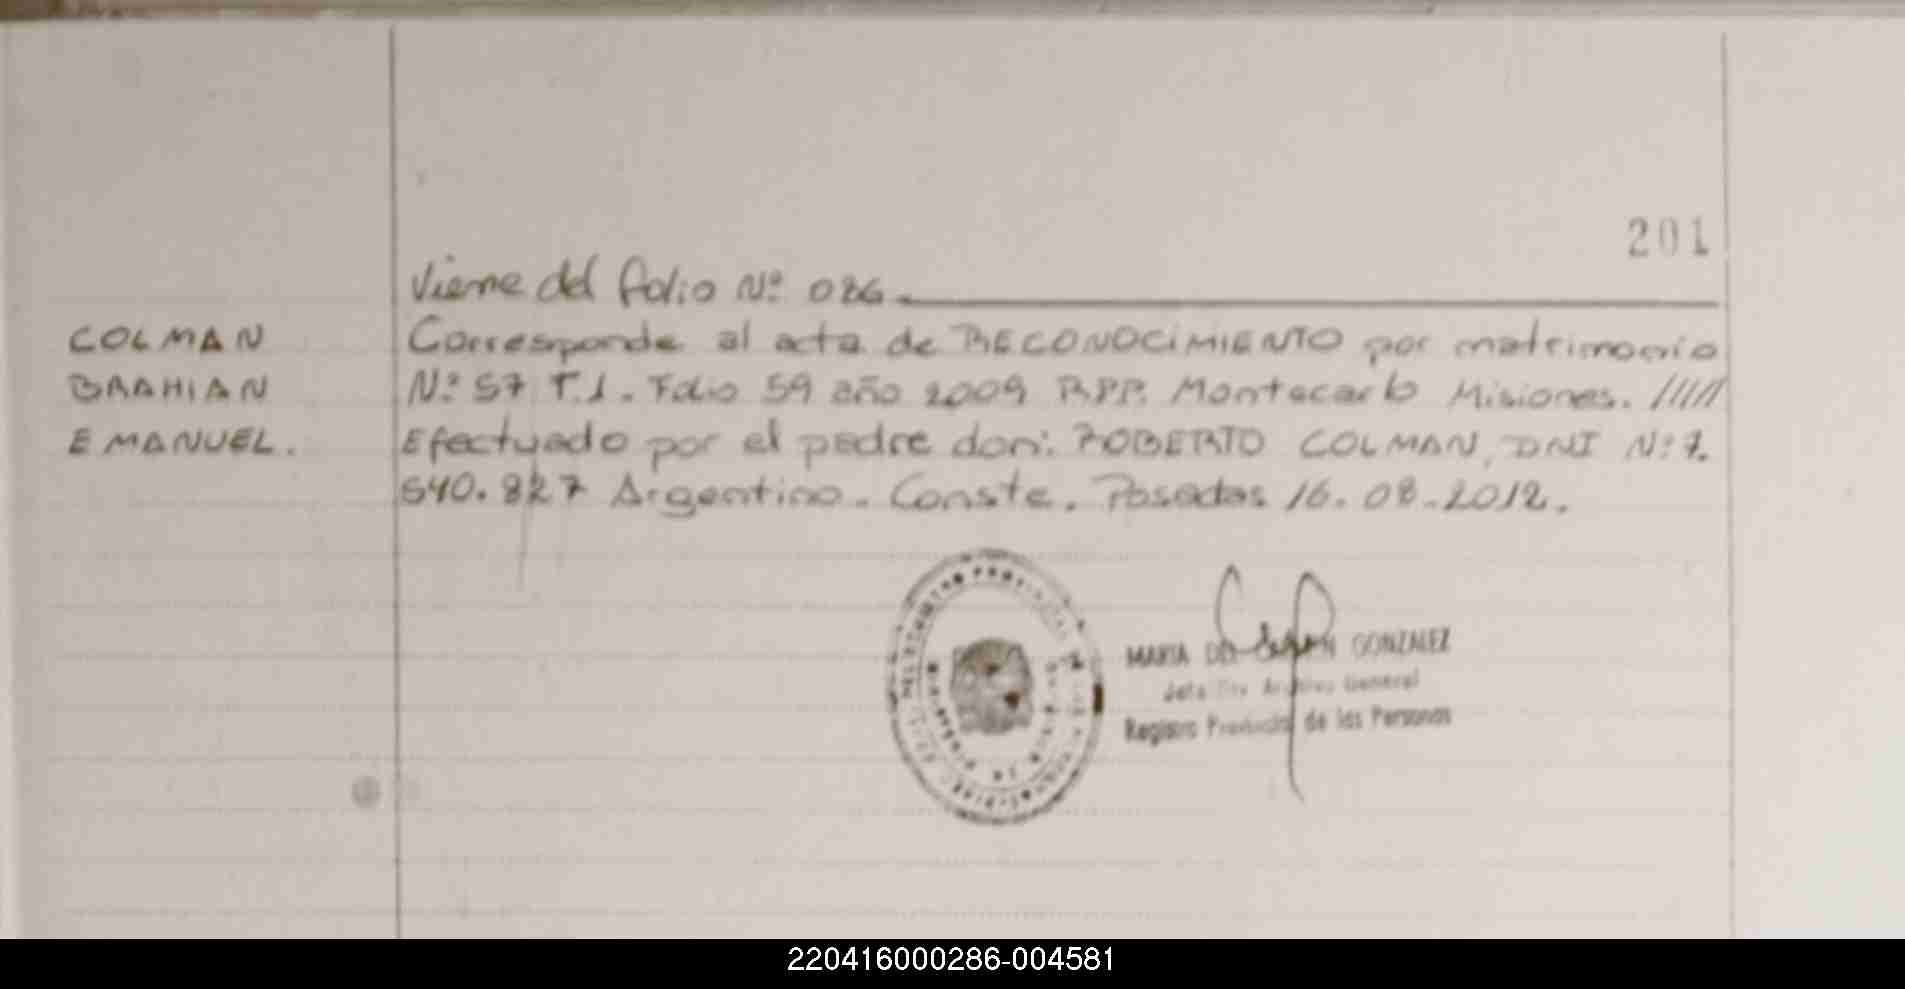 201
Viene del folio Nº 086.
COLMAN
BRAHIAN
EMANUEL.
Corresponde al acta de RECONOCIMIENTO por matrimonio
Nº 57 T.1. Folio 59 año 2009 RPP. Montecarlo Misiones. /////
Efectuado por el padre don: ROBERTO COLMAN, DNI Nº 7.
540.827 Argentino. Conste. Posadas 16.08.2012.
MARIA DEL GONZALEZ
Archivo General
Registro Provincial de las Personas
220416000286-004581